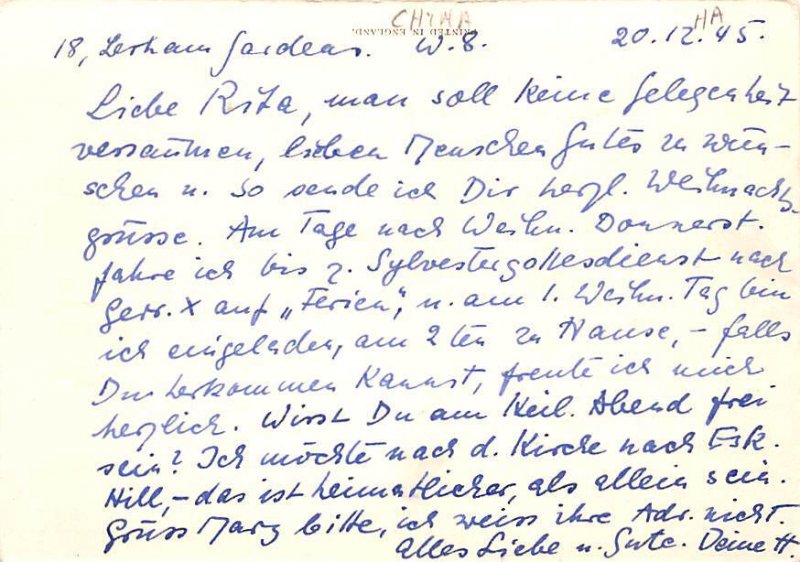 CHINA HA
PRINTED IN ENGLAND.
18, Lexham Gardens. W.8. 20.12.45.
Liebe Rita, man soll keine Gelegenheit
versäumen, lieben Menschen Gutes zu wün-
schen u. so sende ich Dir herzl. Weihnachts-
grüsse. Am Tage nach Weihn. Donnerst.
fahre ich bis z. Sylvestergottesdienst nach
Gerr. X auf „Ferien", u. am 1. Weihn. Tag bin
ich eingeladen, am 2ten zu Hause, – falls
Du herkommen kannst, freute ich mich
herzlich. Wirst Du am Heil. Abend frei
sein? Ich möchte nach d. Kirche nach Esk.
Hill, – das ist heimatlicher, als allein sein.
Grüss Mary bitte, ich weiss ihre Adr. nicht.
Alles Liebe u. Gute. Deine H.